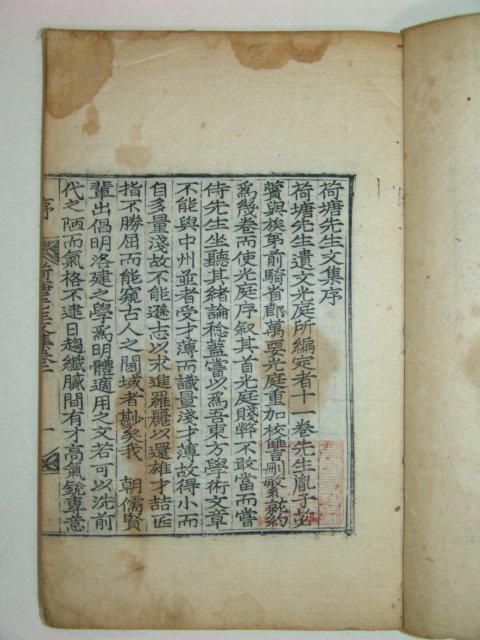 荷塘先生文集序
荷塘先生遺文光庭所編定者十一卷先生胤子苾
賢與族弟前騎省郎萬要光庭重加校讐刪繁就約
爲幾卷而使光庭序叙其首光庭賤弊不敢當而嘗
侍先生坐聽其緖論稔蓋嘗以爲吾東方學術文章
不能與中州並者受才薄而識量淺才薄故得小而
自多量淺故不能遜志以求進羅麗以還雄才詰匠
指不勝屈而能窺古人之閫域者尠矣我 朝儒賢
輩出倡明洛建之學爲明體適用之文若可以洗前
代之陋而氣格不逮日趨纖膩間有才高氣銳專意
序